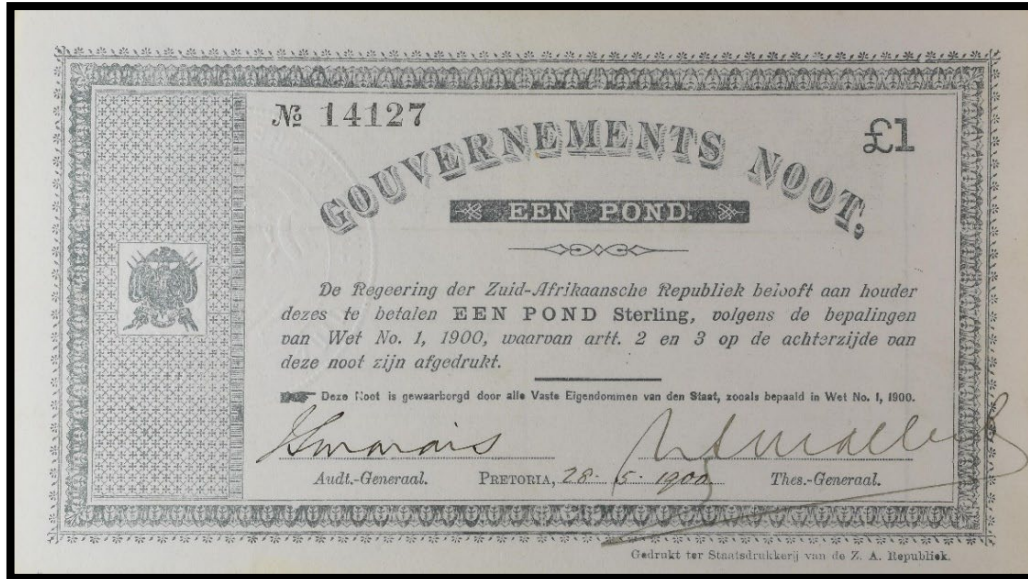 № 14127
£1
GOUVERNEMENTS NOOT,
EEN POND.
De Regeering der Zuid-Afrikaansche Republiek belooft aan houder
dezes te betalen EEN POND Sterling, volgens de bepalingen
van Wet No. 1, 1900, waarvan artt. 2 en 3 op de achterzijde van
deze noot zijn afgedrukt.
Deze Noot is gewaarborgd door alle Vaste Eigendommen van den Staat, zooals bepaald in Wet No. 1, 1900.
Audt.-Generaal. PRETORIA, 28 . 5 . 1900 Thes.-Generaal.
Gedrukt ter Staatsdrukkerij van de Z. A. Republiek.